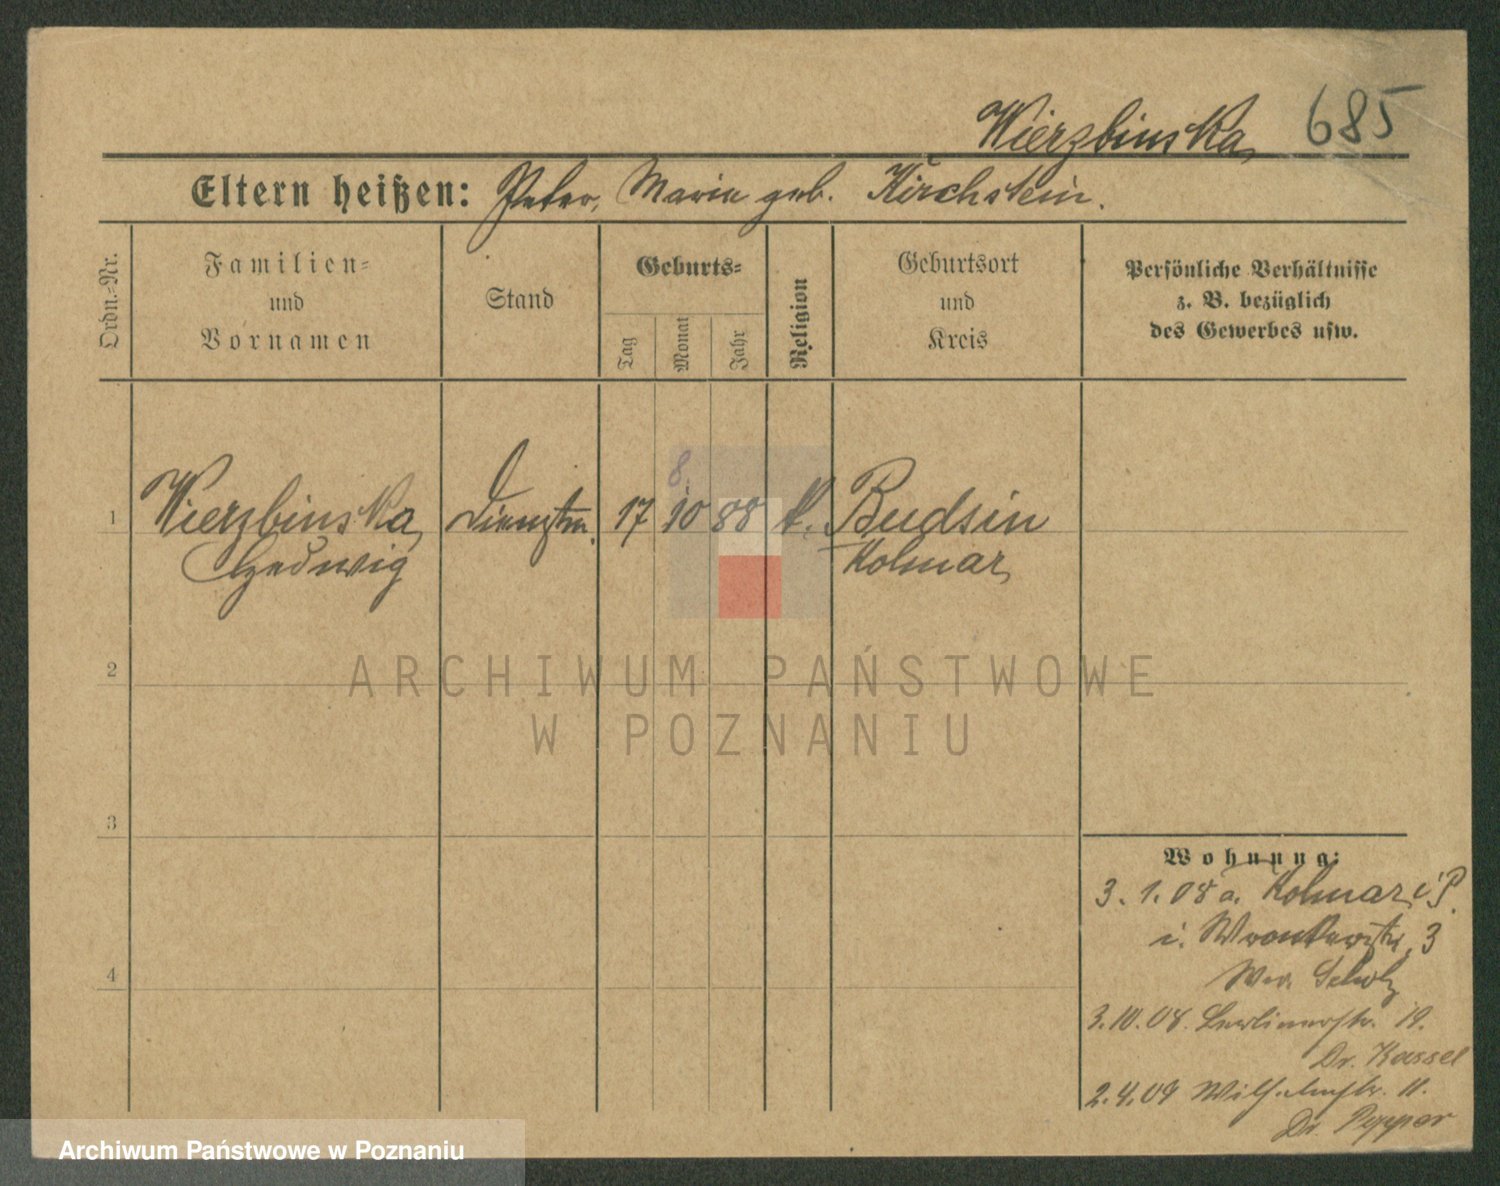 Wierzbinska
685
Eltern heißen: Peter, Marie geb. Kirchstein.
Ordn.-Nr.
Familien-
und
Vornamen
Stand
Geburts-
Tag
Monat
Jahr
Religion
Geburtsort
und
Kreis
Persönliche Verhältnisse
z. B. bezüglich
des Gewerbes usw.
8.
1 Wierzbinska, Dienstm. 17 10 88 k. Budsin
Hedwig Kolmar
2
3
4
Wohnung:
3. 1. 08 a. Kolmar i/P.
i. Wronkerstr. 3
Scholz
3. 10. 08. Berlinerstr. 19.
Dr. Kassel
2. 4. 09 Wilhelmstr. 11.
Dr.
ARCHIWUM PAŃSTWOWE
W POZNANIU
Archiwum Państwowe w Poznaniu